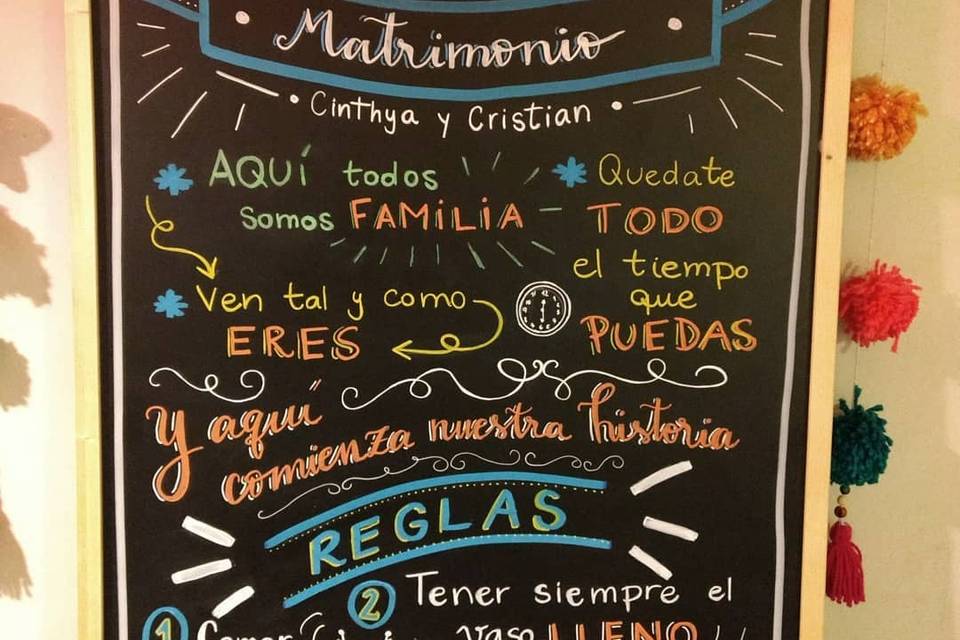 Matrimonio
Cinthya y Cristian
AQUÍ todos
somos FAMiLiA
Ven tal y como
ERES
Quedate
TODO
el tiempo
que
PUEDAS
Y aquí
comienza nuestra historia
REGLAS
2 Tener siempre el
vaso LLENO
1 Comer